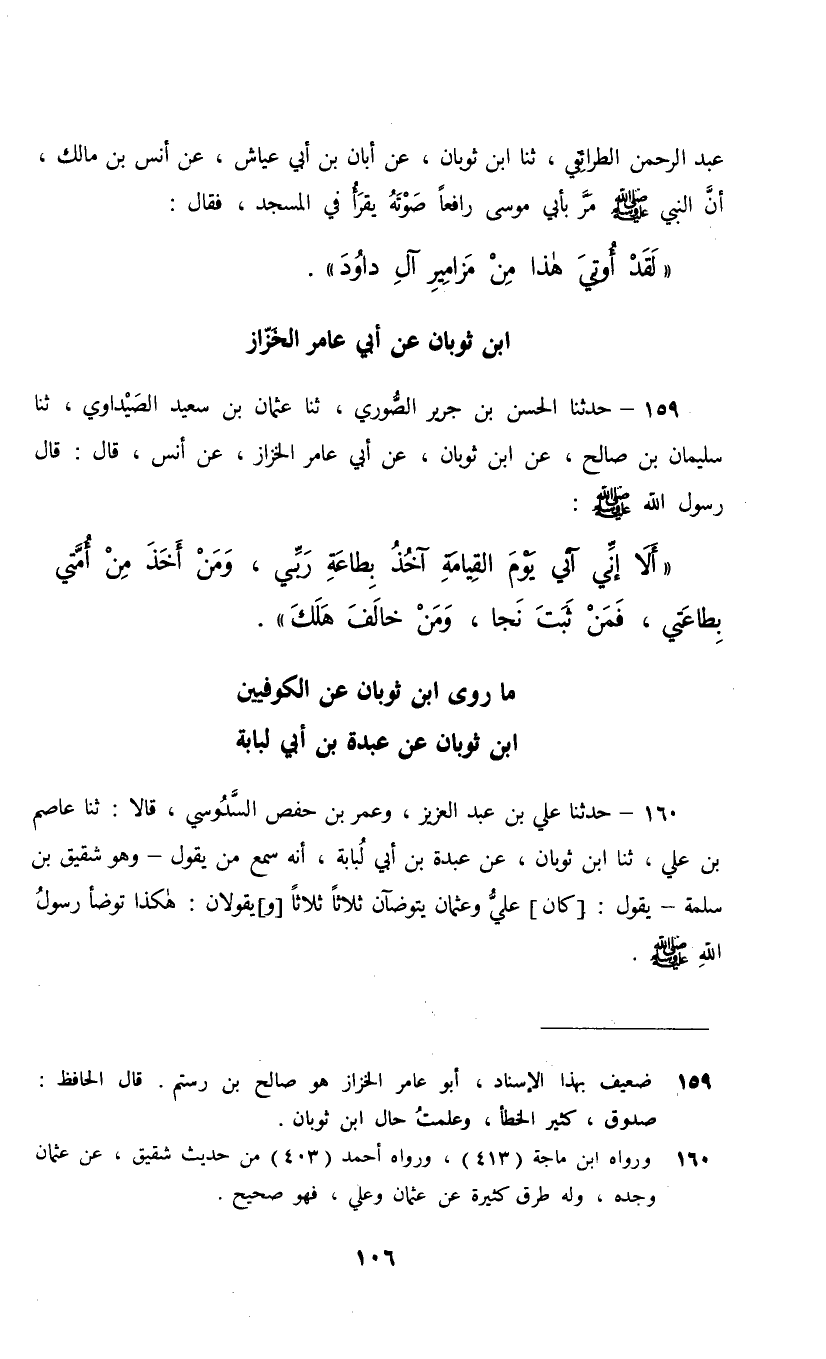 عبد الرحمن الطرائِفي ، ثنا ابن ثوبان ، عن أبان بن أبي عياش ، عن أنس بن مالك ،
أنَّ النبي ﷺ مَرَّ بأبي موسى رافعاً صَوْتَهُ يقرَأُ في المسجد ، فقال :
« لَقَدْ أُوتِيَ هٰذا مِنْ مَزامِيرِ آلِ داوُدَ » .
ابن ثوبان عن أبي عامر الخَزّاز
١٥٩ – حدثنا الحسن بن جرير الصُّوري ، ثنا عثمان بن سعيد الصَيْداوي ، ثنا
سليمان بن صالح ، عن ابن ثوبان ، عن أبي عامر الخزاز ، عن أنس ، قال : قال
رسول الله ﷺ :
« أَلَا إِنِّي آتي يَوْمَ القِيامَةِ آخُذُ بِطاعَةِ رَبِّي ، وَمَنْ أَخَذَ مِنْ أُمَّتي
بِطاعَتي ، فَمَنْ ثَبَتَ نَجا ، وَمَنْ خالَفَ هَلَكَ » .
ما روى ابن ثوبان عن الكوفيين
ابن ثوبان عن عبدة بن أبي لبابة
١٦٠ – حدثنا علي بن عبد العزيز ، وعمر بن حفص السَّدُوسي ، قالا : ثنا عاصم
بن علي ، ثنا ابن ثوبان ، عن عبدة بن أبي لُبابة ، أنه سمع من يقول – وهو شقيق بن
سلمة – يقول : [كان] عليُّ وعثمان يتوضآن ثلاثاً ثلاثاً [و]يقولان : هٰكذا توضأ رسولُ
اللهِ ﷺ .
١٥٩ ضعيف بهذا الإسناد ، أبو عامر الخزاز هو صالح بن رستم . قال الحافظ :
صدوق ، كثير الخطأ ، وعلمتُ حال ابن ثوبان .
١٦٠ ورواه ابن ماجة (٤١٣) ، ورواه أحمد (٤٠٣) من حديث شقيق ، عن عثمان
وجده ، وله طرق كثيرة عن عثمان وعلي ، فهو صحيح .
١٠٦